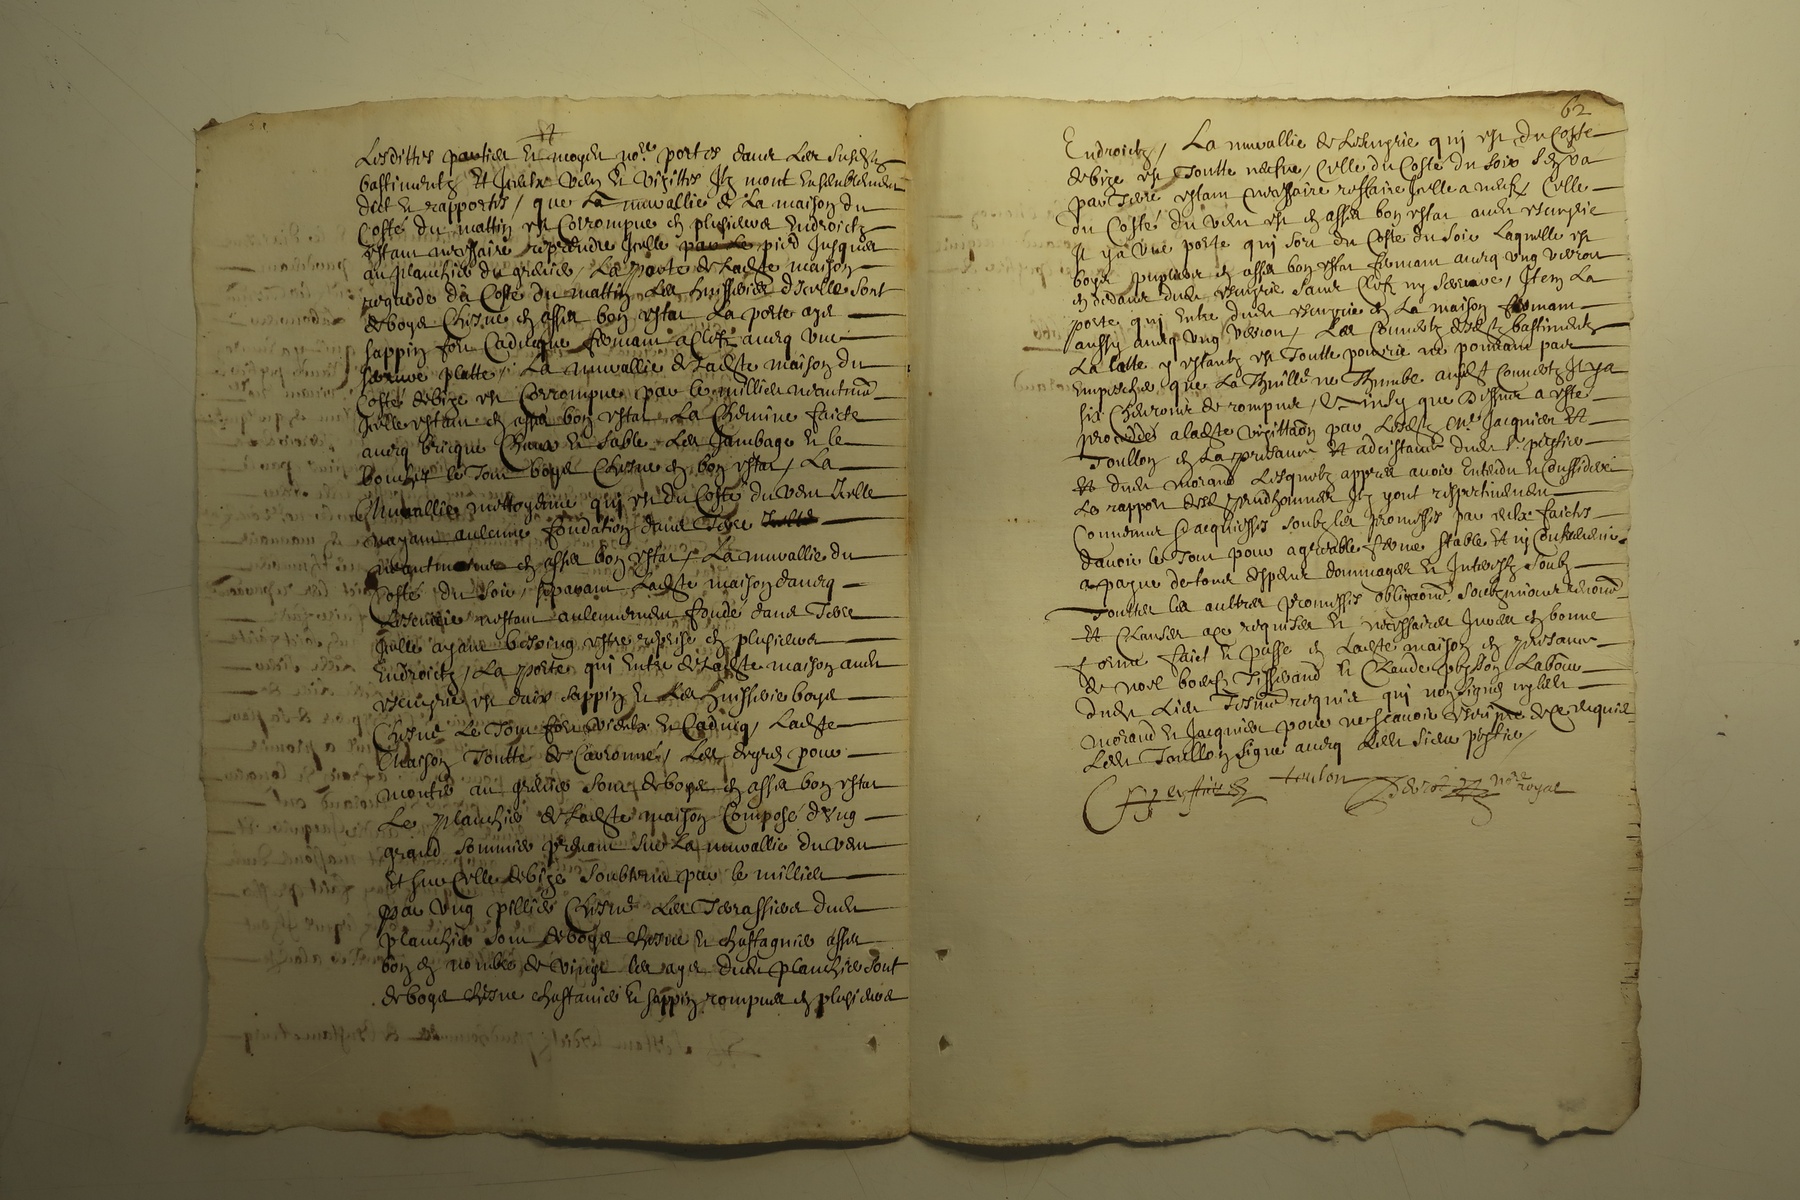 Lesdittes parties et moyen no.re portes dans les susdits
bastimentz et iceux veuz et vizittes Ilz mont ensemblement
dict et rapportes, que La muraillie de La maison du
Costé du mattin est Corrompue en plusieurs endroictz
estant necessaire reprendre Icelle pied Jusques
au planchier du grenier, La porte de Ladte maison
regarde du Costé du mattin Les huisseries dIcelle sont
de boys Chesne en asses bon estat La porte ays
sappin fort Caducque fermant a Clefz avecq une
serrure platte, La muraillie de Ladte maison du
Costé de bize est Corrompue par le millieu neantmo
Icelle estant en asses bon estat La Chemine faicte
avecq bricque Chaux et sable Les Jambage et le
le tout boys Chesne en bon estat, La
Muraillie mittoyenne qui est du Costé du vent Icelle
nayant aulcune fondation dans Terre
neantmoins en asses bon estat, La muraillie du
Costé du soir, separant Ladte maison davecq
Lescuirie nestant aulcunement fondé dans Terre
Icelle ayant besoing estre reprise en plusieurs
Endroictz, La porte qui Entre de Ladte maison aud
escuyrie est daix sappin et Les huisserie boys
Chesne Le Tout fort vieulx et Caducq, Ladte
Maison Toutte de Carronné, Les degres pour
monter au grenier sont de boys en asses bon estat
Le planchier de Ladte maison Composé dung
grand sommier prenant sur La muraillie du vent
Et sur Celle de bize soubtenu par le millieu
par ung pillier Chesne Les Terassiers dud
planchier sont de boys chesne et chastagnier asses
bon en nombre de vingt les ays dud planchier sont
de boys chesne chastanier et sappin rompues en plusieurs
62
Endroictz, La muraillie de Lescuyrie qui est du Costé
de bize est Toutte neufve, Celle du Costé du soir sen va
par Terre estant necessaire reffaire Icelle a neufz, Celle
du Costé du vent est en asses bon estat aud escuyrie
Il y a une porte qui sort du Costé du soir Laquelle est
boys en asses bon estat fermant avecq ung verrou
en dedans dud escuyrie sans Clefz ny serrure, Item La
porte qui Entre dud escuyrie en La maison fermant
aussy avecq ung verrou, Les Couvertz desdts bastimentz
La latte y estantz est Toutte pourrie ne pouvant pas
Empescher que La Thuille ne Thumbe ausdt Couvertz Il y a
six Chevrons de rompues, Et ainsy que Dessus a este
procedés a ladte vizittaon par Lesdts Me Jacquier et
Toullon en La presence et adcistance dud Sr
et dud Morand Lesquelz appres avoir Entendu et Conssideré
Le rapport desd prudhommes Ilz y ont respectivement
Convenus dacquiesses soubz les promesses par eulx faictes
davoir le Tout pour agreable ferme stable et ny Contrevenir
a payne de tous despens dommages et Interestz soubz
Touttes les aultres promesses obligaons soubzmissions renonon
et Clauses a ce requises et necessaires Jurees en bonne
forme faict et passe en Ladte maison en presence
de noel boeufz Tisserand et Claude Labour
dud Lieu Tesmoins requis qui nont signes ny led
Morand et Jacquier pour ne scavoir escripre de ce requis
Led Toullon signé avecq Led sieur
toulon no.re royal